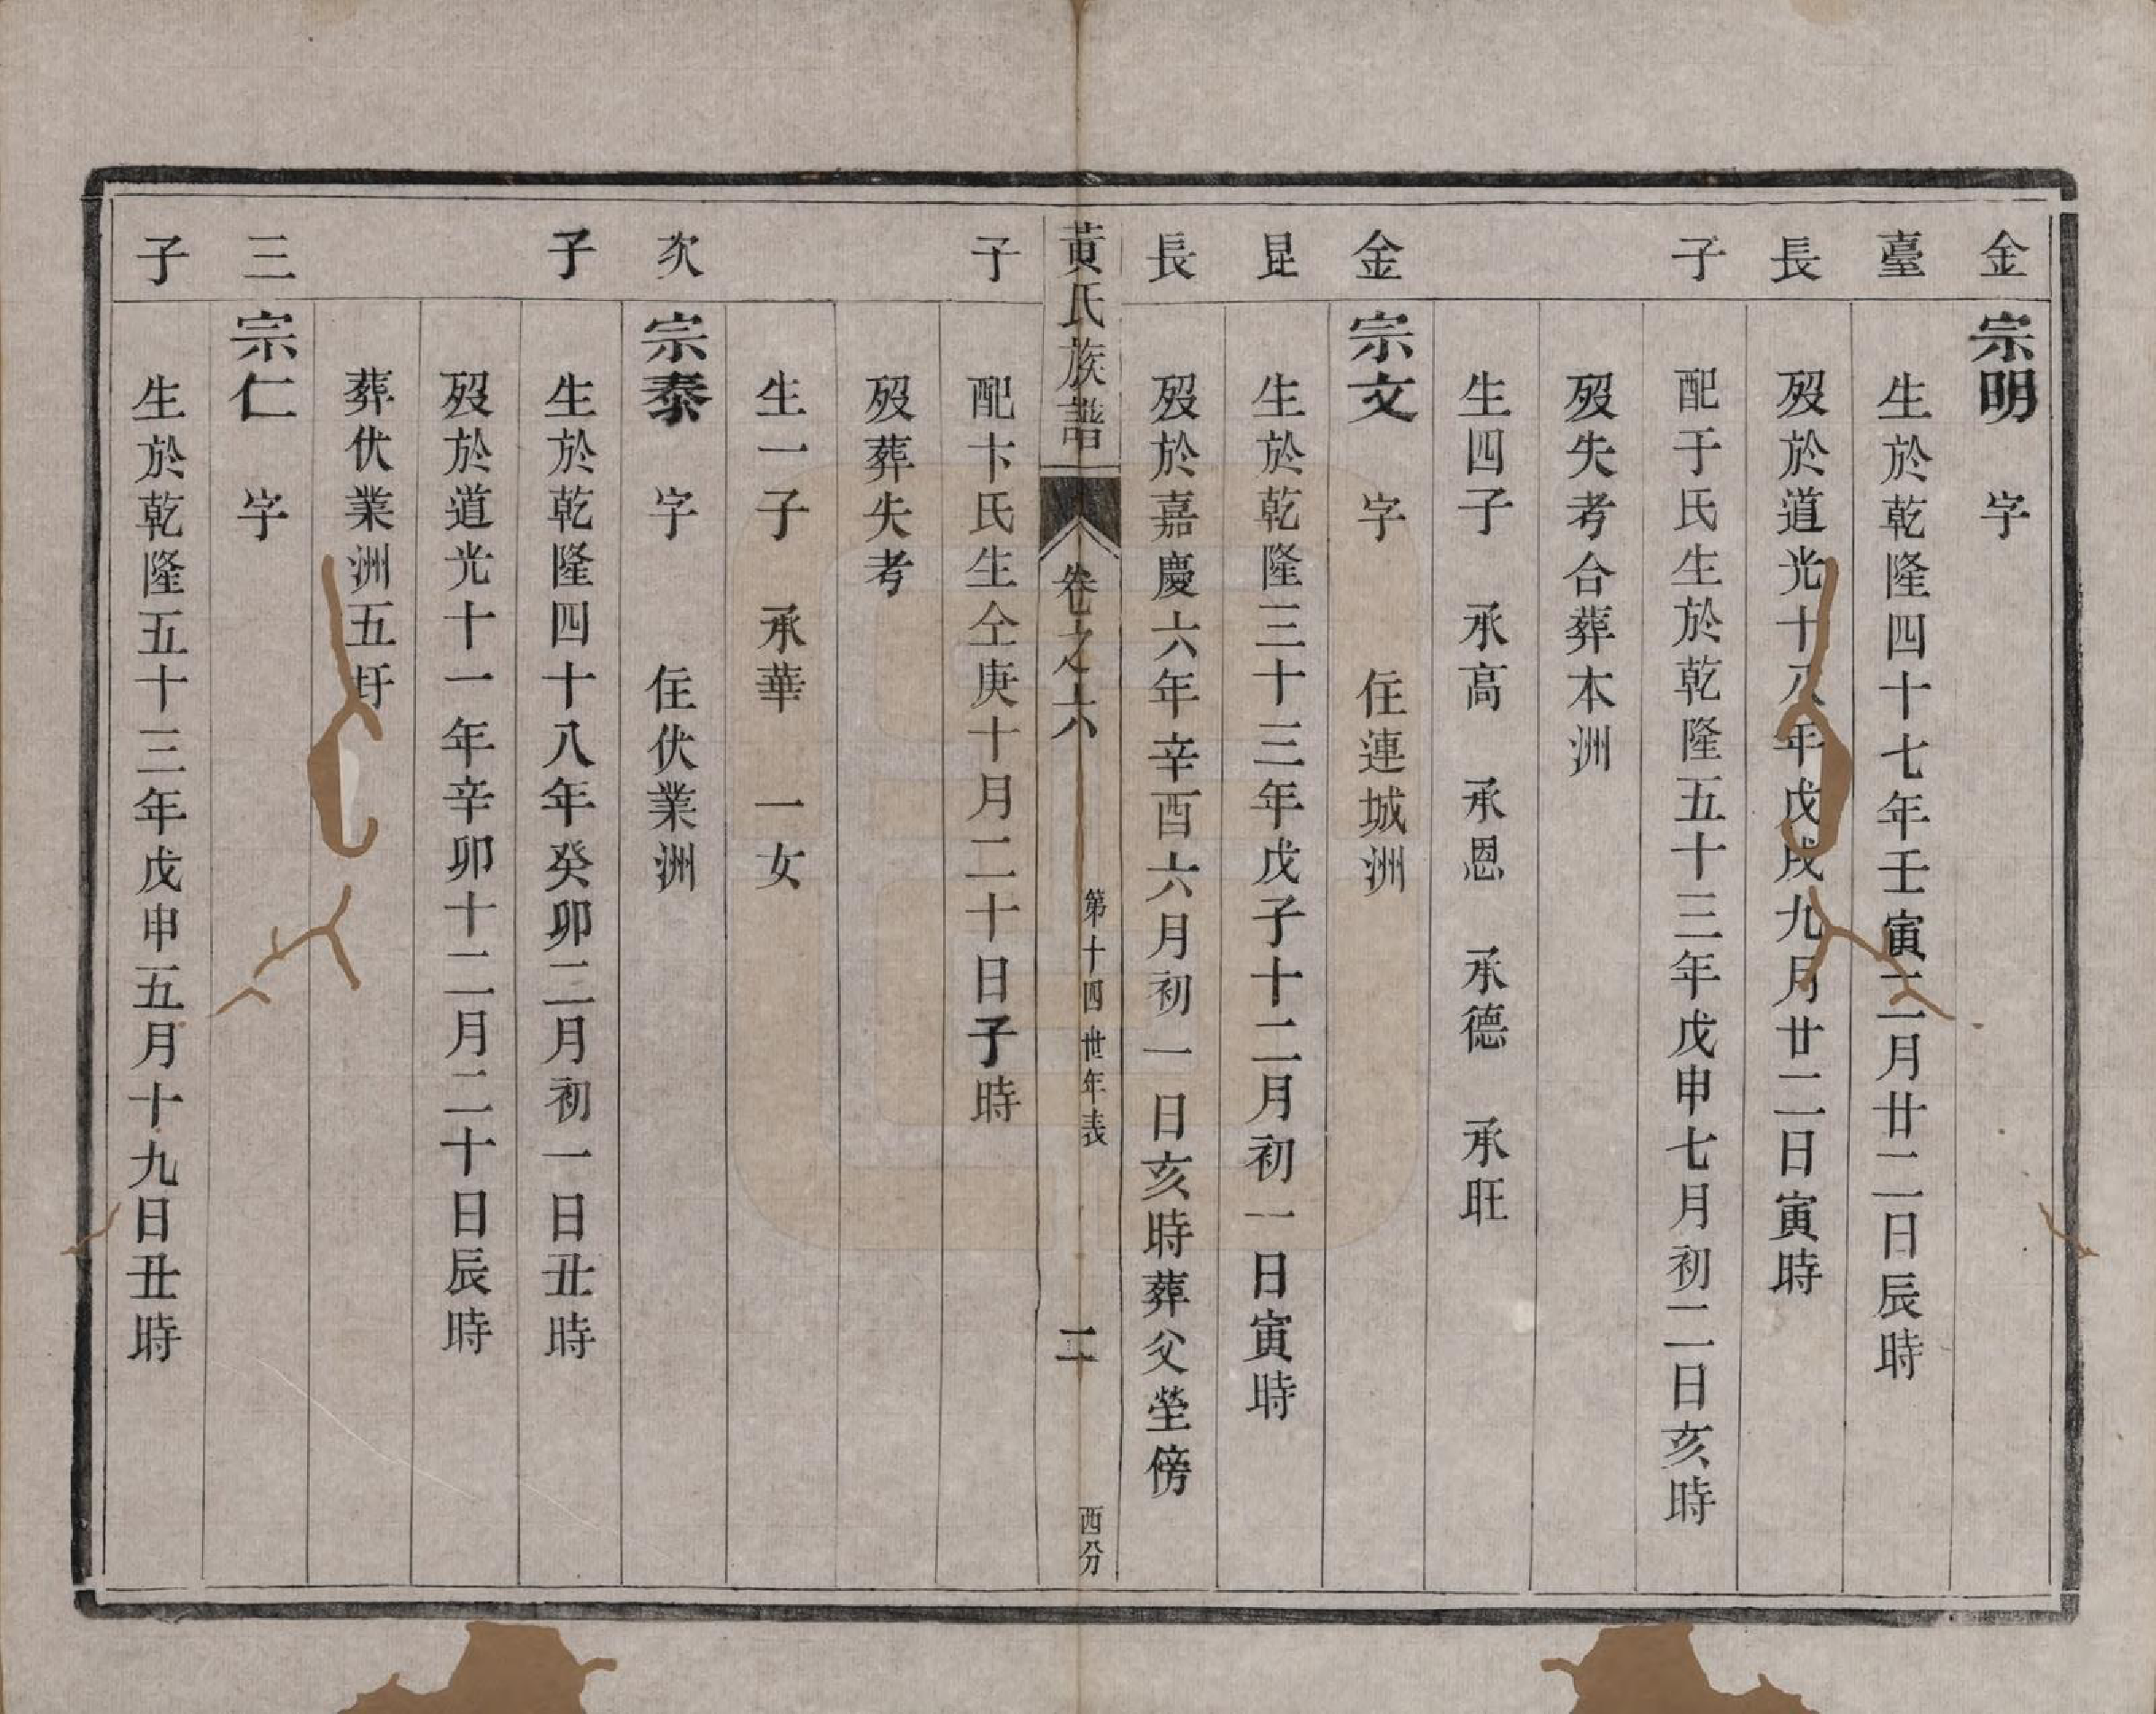 金臺長子
宗明 字
生於乾隆四十七年壬寅二月廿二日辰時
歿於道光十八年戊戌九月廿二日寅時
配于氏生於乾隆五十三年戊申七月初二日亥時
歿失考合葬本洲
生四子 承高 承恩 承德 承旺
金昆長子
宗文 字 住連城洲
生於乾隆三十三年戊子十二月初一日寅時
歿於嘉慶六年辛酉六月初一日亥時葬父塋傍
黃氏族譜 卷之六 第十四世年表 二 西分
配卞氏生仝庚十月二十日子時
歿葬失考
生一子 承華 一女
次子
宗泰 字 住伏業洲
生於乾隆四十八年癸卯二月初一日丑時
歿於道光十一年辛卯十二月二十日辰時
葬伏業洲五圩
三子
宗仁 字
生於乾隆五十三年戊申五月十九日丑時